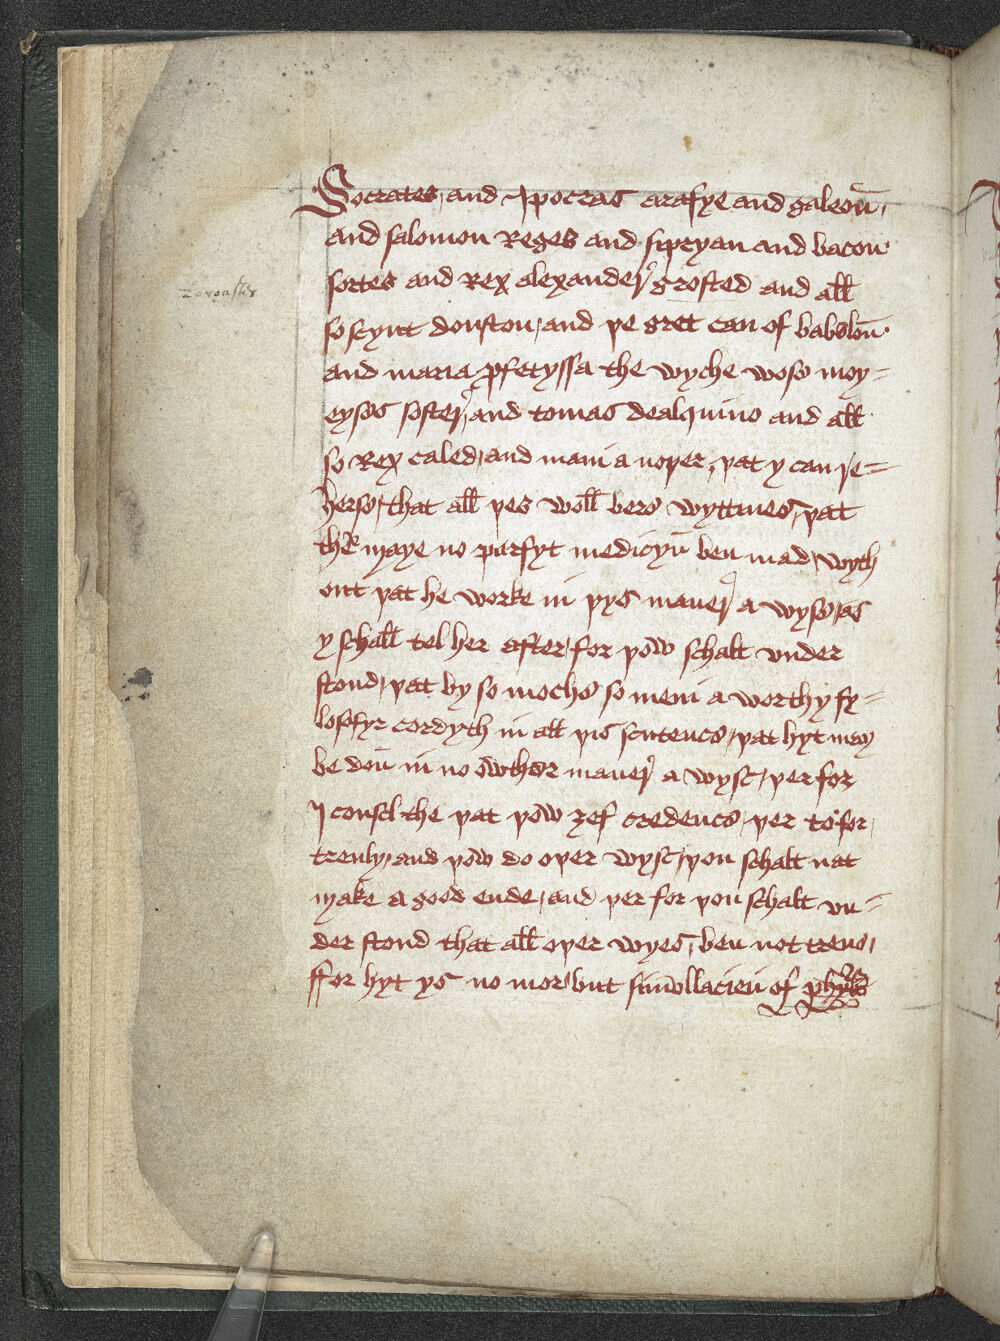 Socrates and Ipocras arafye and galeoun
and salomon Reges and sipryan and bacon
sortes and Rex alexander grosted and all
so seynt donston and þe gret can of babelon
and maria profetyssa the wyche wose moy=
eyses soster and tomas dealquino and all
so Rex caled and mani a noþer þat y can re=
herse that all þes woll bere wyttnes þat
ther maye no parfyt medicyn ben mad wyth
out þat he worke in þys maner a wyse as
y schall tel her after for þow schalt vnder
stond þat by so moche so meni a worthy fy=
losofyr cordyth in all þis sentence þat hyt may
be don in no owther maner a wyse þer for
I consel the þat þow zef credence þer to for
treuly and þow do oþer wyse þou schalt nat
make a good ende and þer for þou schalt vn=
der stond that all oþer wyes ben not trene
ffor hyt ys no mor but simollacien of